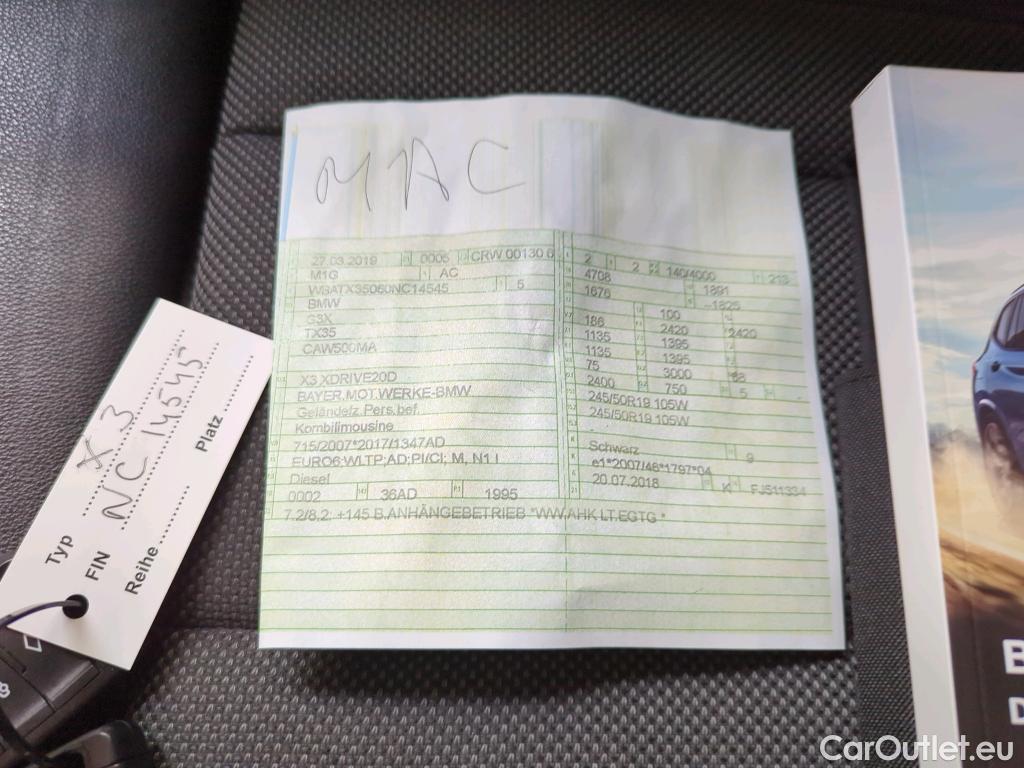 MAC
27.03.2019 0005 CRW 00130 6
M1G AC
WBATX35060NC14545 5
BMW
G3X
TX35
CAW500MA
X3 XDRIVE20D
BAYER.MOT.WERKE-BMW
Geländefz.Pers.bef.
Kombilimousine
715/2007*2017/1347AD
EURO6;WLTP;AD;PI/CI; M, N1 I
Diesel
0002 36AD 1995
7.2/8.2: +145 B.ANHÄNGEBETRIEB *WW.AHK LT.EGTG *
2 2 140/4000 213
4708 1891
1676 --1825
100
186 2420 2420
1135 1395
1135 1395
75 3000 68
2400 750 5
245/50R19 105W
245/50R19 105W
-
Schwarz 9
e1*2007/46*1797*04
20.07.2018 K FJ511334
Typ X3
FIN NC 14545
Reihe Platz
B
D
CarOutlet.eu